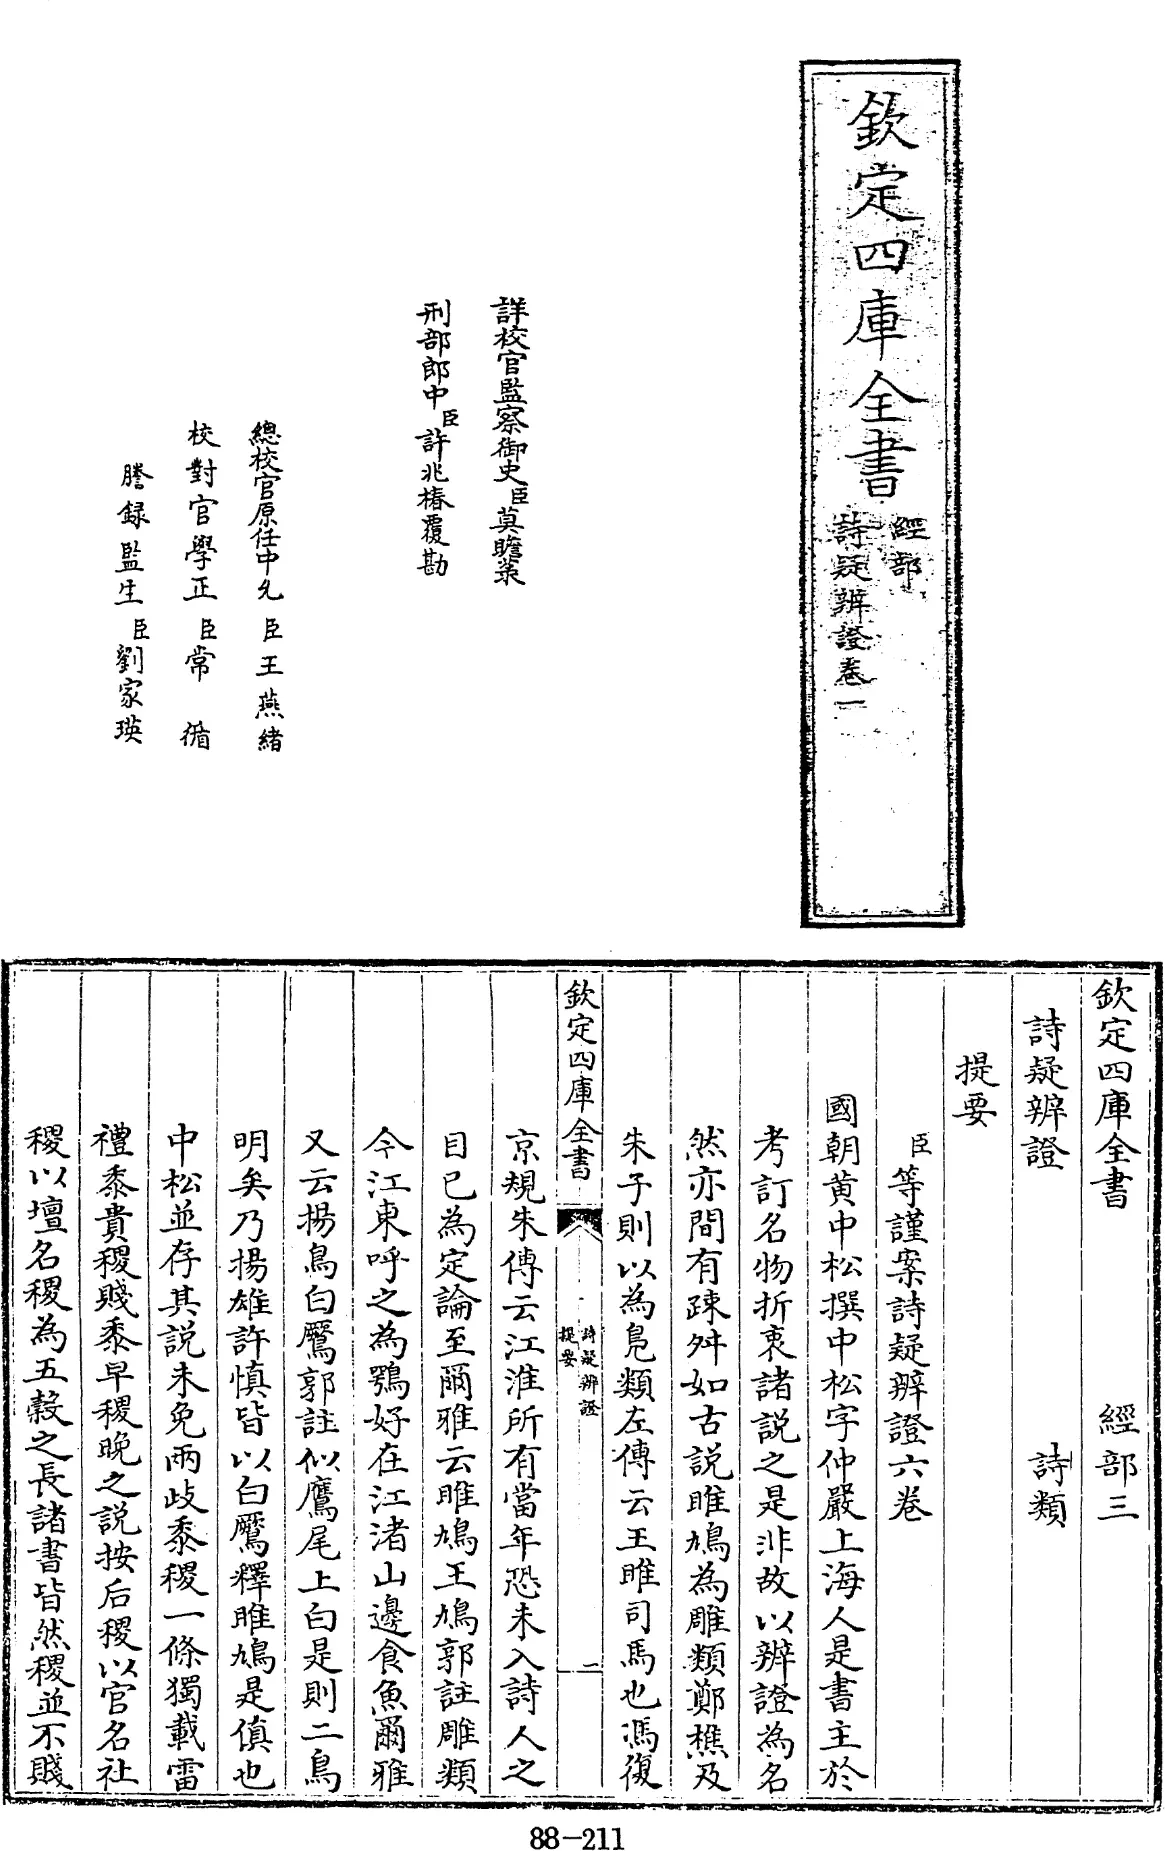 欽定四庫全書
經部
詩疑辨證卷一
詳校官監察御史臣莫瞻菉
刑部郎中臣許兆椿覆勘
總校官原任中允臣王燕緒
校對官學正臣常循
謄録監生臣劉家瑛
欽定四庫全書 經部三
詩疑辨證 詩類
提要
臣等謹案詩疑辨證六卷
國朝黄中松撰中松字仲嚴上海人是書主於
考訂名物折衷諸説之是非故以辨證為名
然亦間有踈舛如古説雎鳩為雕類鄭樵及
朱子則以為鳬類左傳云王雎司馬也馮復
欽定四庫全書
詩疑辨證
提要
一
京規朱傳云江淮所有當年恐未入詩人之
目已為定論至爾雅云雎鳩王鳩郭註雕類
今江東呼之為鶚好在江渚山邊食魚爾雅
又云揚鳥白鷢郭註似鷹尾上白是則二鳥
明矣乃揚雄許慎皆以白鷢釋雎鳩是傎也
中松並存其説未免兩歧黍稷一條獨載雷
禮黍貴稷賤黍早稷晚之説按后稷以官名社
稷以壇名稷為五穀之長諸書皆然稷並不賤
88-211